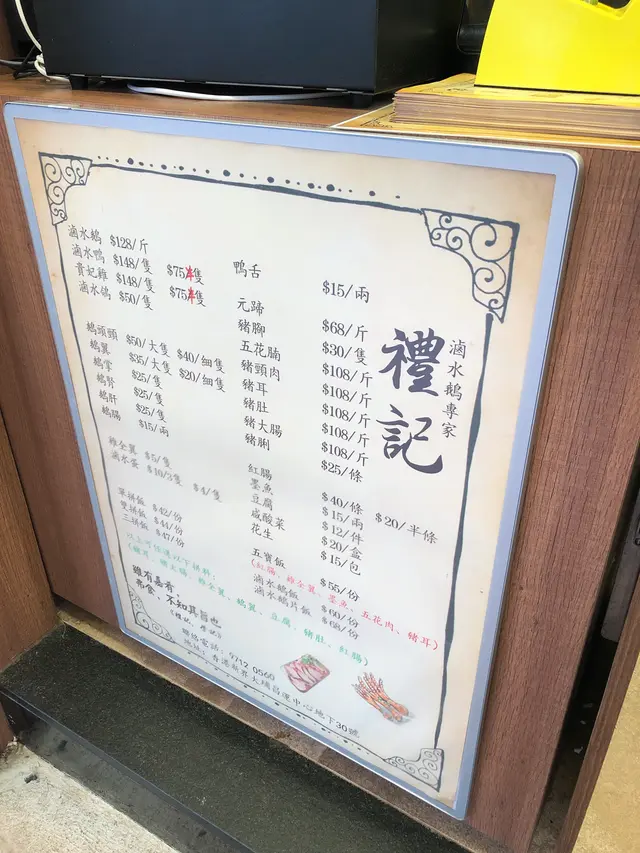 滷水鵝專家
禮記
滷水鵝 $128/斤
滷水鴨 $148/隻 $75半隻
貴妃雞 $148/隻 $75半隻
滷水鴿 $50/隻
鵝頭頸 $50/大隻 $40/細隻
鵝翼 $35/大隻 $20/細隻
鵝掌 $25/隻
鵝腎 $25/隻
鵝肝 $25/隻
鵝腸 $15/兩
雞全翼 $5/隻
滷水蛋 $10/3隻 $4/隻
單拼飯 $42/份
雙拼飯 $44/份
三拼飯 $47/份
以上可任選以下拼料:
(雞耳、豬大腸、雞全翼、鵝翼、豆腐、豬肚、紅腸)
鴨舌 $15/兩
元蹄 $68/斤
豬腳 $30/隻
五花腩 $108/斤
豬頸肉 $108/斤
豬耳 $108/斤
豬肚 $108/斤
豬大腸 $108/斤
豬脷 $25/條
紅腸 $40/條 $20/半條
墨魚 $15/兩
豆腐 $12/件
咸酸菜 $20/盒
花生 $15/包
五寶飯 $55/份
(紅腸、雞全翼、墨魚、五花肉、豬耳)
滷水鵝飯 $60/份
滷水鵝片飯 $68/份
雖有嘉肴,
弗食,不知其旨也
聯絡電話: 9712 0560
地址:香港新界大埔昌運中心地下30號